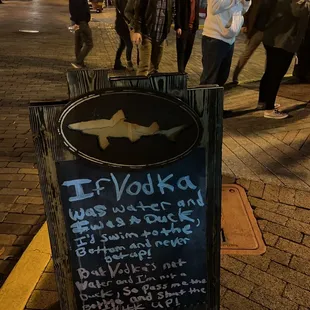 If Vodka
was water and
I was a Duck,
I'd swim to the
Bottom and never
get up!
But Vodka's not
water and I'm not a
Duck, So Pass me the
Bottle and Shut the
UP!